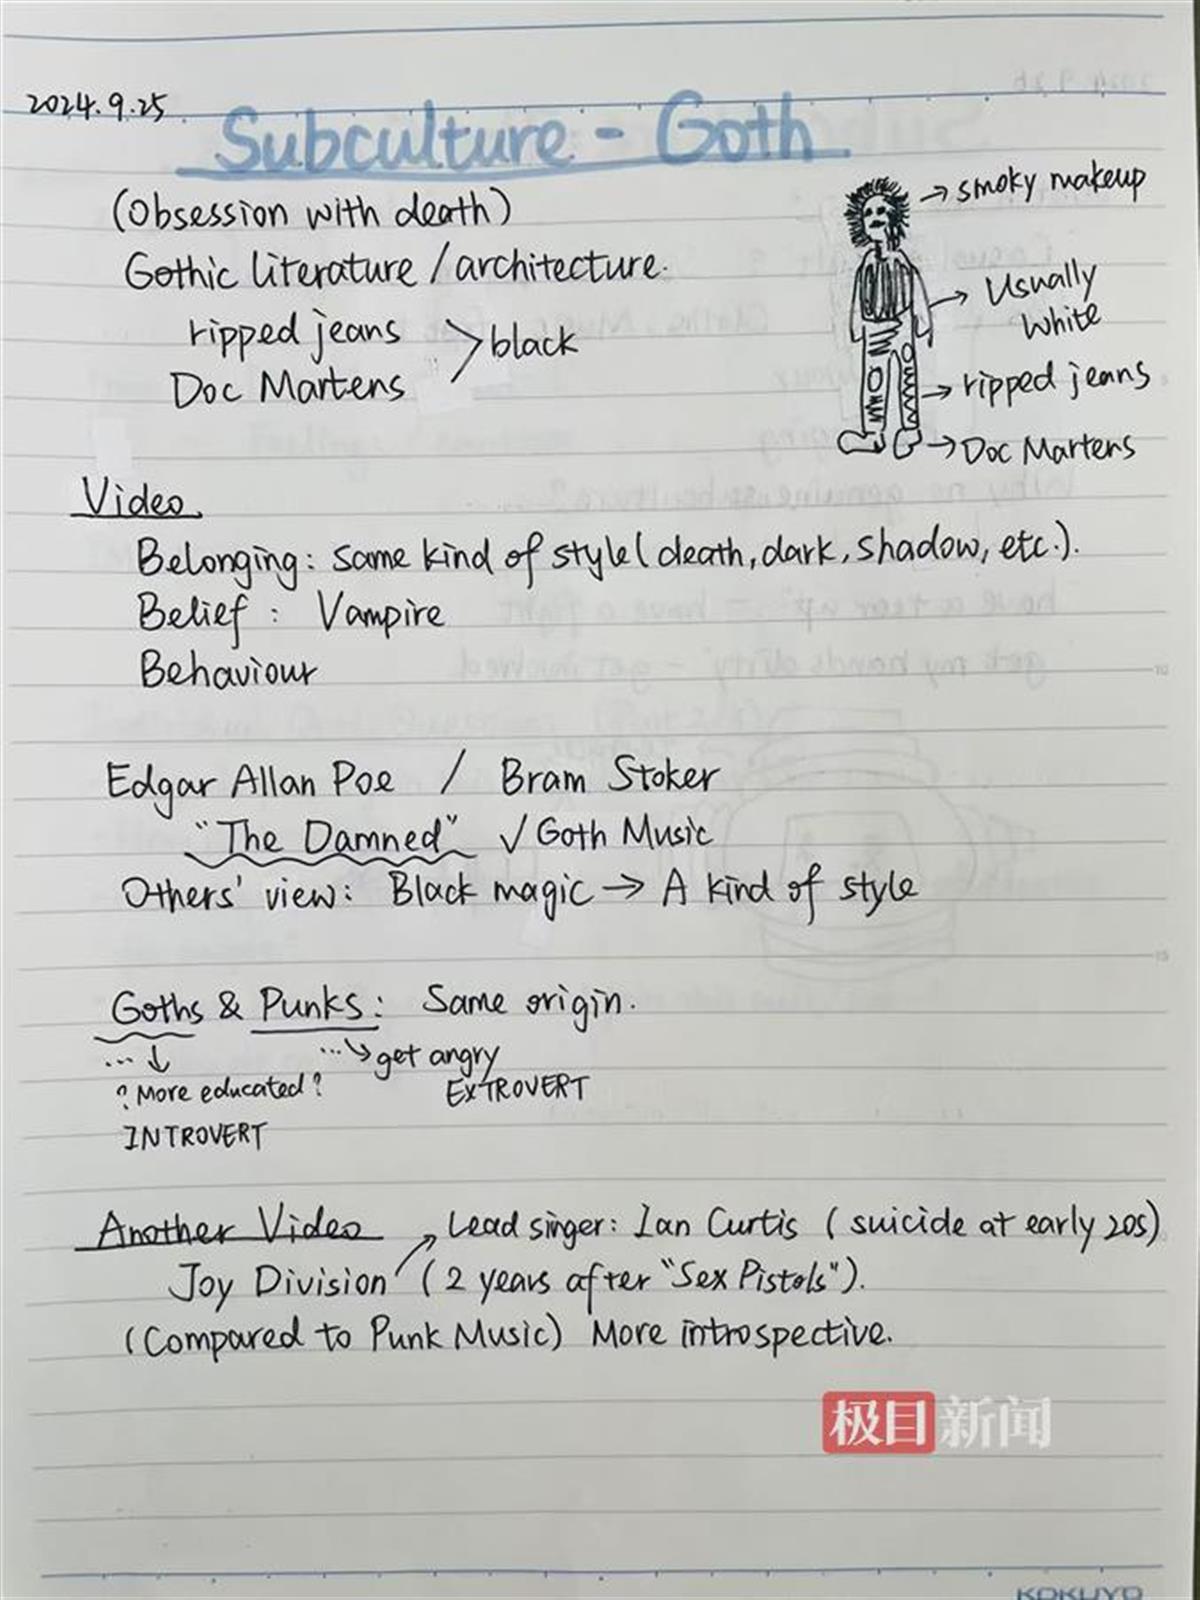 2024.9.25
Subculture - Goth
(Obsession with death)
Gothic literature / architecture.
ripped jeans
Doc Martens
> black
→ smoky makeup
→ Usually
white
→ ripped jeans
→ Doc Martens
Video
Belonging: same kind of style (death, dark, shadow, etc.).
Belief : Vampire
Behaviour
Edgar Allan Poe / Bram Stoker
"The Damned" √ Goth Music
Others' view: Black magic → A kind of style
Goths & Punks: Same origin.
... ↓ ... → get angry
? More educated? EXTROVERT
INTROVERT
Another Video → Lead singer: Ian Curtis (suicide at early 20s)
Joy Division (2 years after "Sex Pistols").
(Compared to Punk Music) More introspective.
极目新闻
KOKUYO